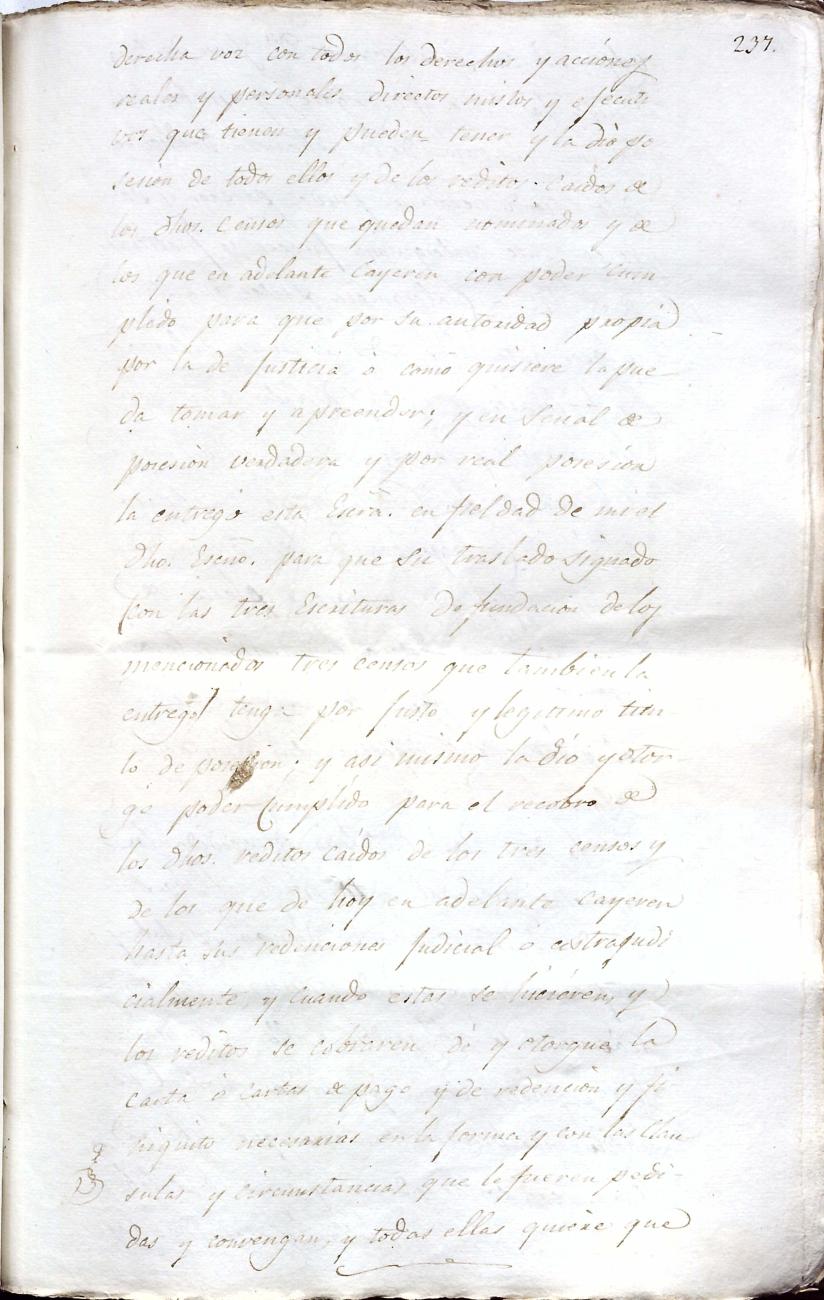 237.
derecha voz con todos los derechos y acciónes
reales y personales directos mistos y efecuti
vos que tienen y pueden tener y la dio po
sesion de todos ellos y de los reditos caidos de
los dhos. censos que quedan nominados y de
los que en adelante cayeren con poder cum
plido para que por su autoridad propia
por la de Justicia ó como quisiere la pue
da tomar y apreender; y en señal de
posesion verdadera y por real posesion
la entregó esta Escra. en fieldad de mi el
dho. Escno. para que su traslado signado
(con las tres Escrituras de fundacion de los
mencionados tres censos que tambien la
entregó) tenga por Justo y legitimo titu
lo de posesion; y asi mismo la dio y otor
gó poder cumplido para el recobro de
los dhos. reditos caídos de los tres censos y
de los que de hoy en adelante cayeren
hasta sus redenciones Judicial ó extrajudi
cialmente, y cuando estas se hiciéren, y
los reditos se cobraren dé y otorgue la
carta ó cartas de pago y de redencion y fi
niquito necesarias en la forma y con las Clau
sulas y circunstancias que le fueren pedi-
das y convengan, y todas ellas quiere que